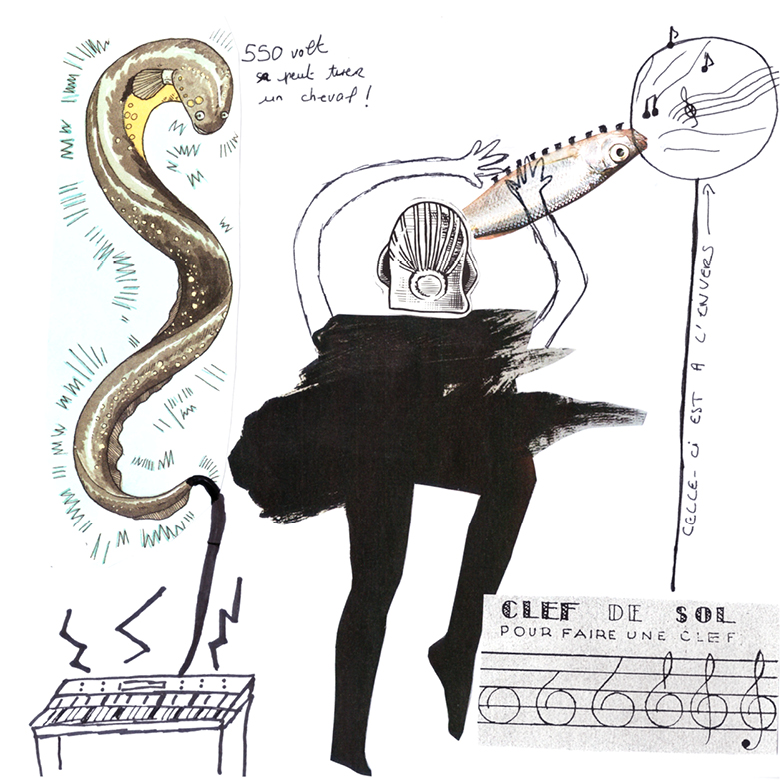 550 volt
peut tuer
un cheval !
CELLE-CI EST À L'ENVERS
CLEF DE SOL
POUR FAIRE UNE CLEF